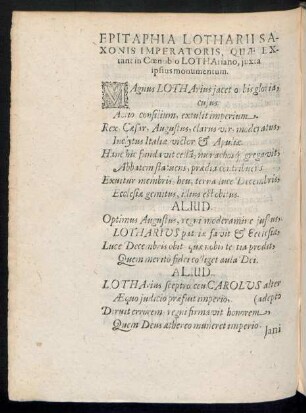 EPITAPHIA LOTHARII SA-
XONIS IMPERATORIS, QUÆ EX-
tant in Cœnobio LOTHAriano, juxta
ipsius monumentum.
MAgnus LOTHArius jacet hic gloria,
cujus
Auxit consilium, extulit imperium.
Rex, Cæsar, Augustus, clarus vir, moderatus,
Inclytus Italiæ victor & Apuliæ.
Hanc hic fundavit
Abbatem statuens, prædia contribuens.
Exuitur membris, heu, terra luce Decembris
Ecclesiæ genitus,
ALIUD.
Optimus Augustus, regni moderamine justus,
LOTHARIUS &
Luce Decembris obit
Quem meritò fulci colliget aula Dei.
ALIUD.
LOTHArius sceptro ceu CAROLUS alter
(adepto
Æquo judicio præfuit imperio.
Diruit errorem, regni firmavit honorem
Quem Deus æthereo muneret imperio.
Jani